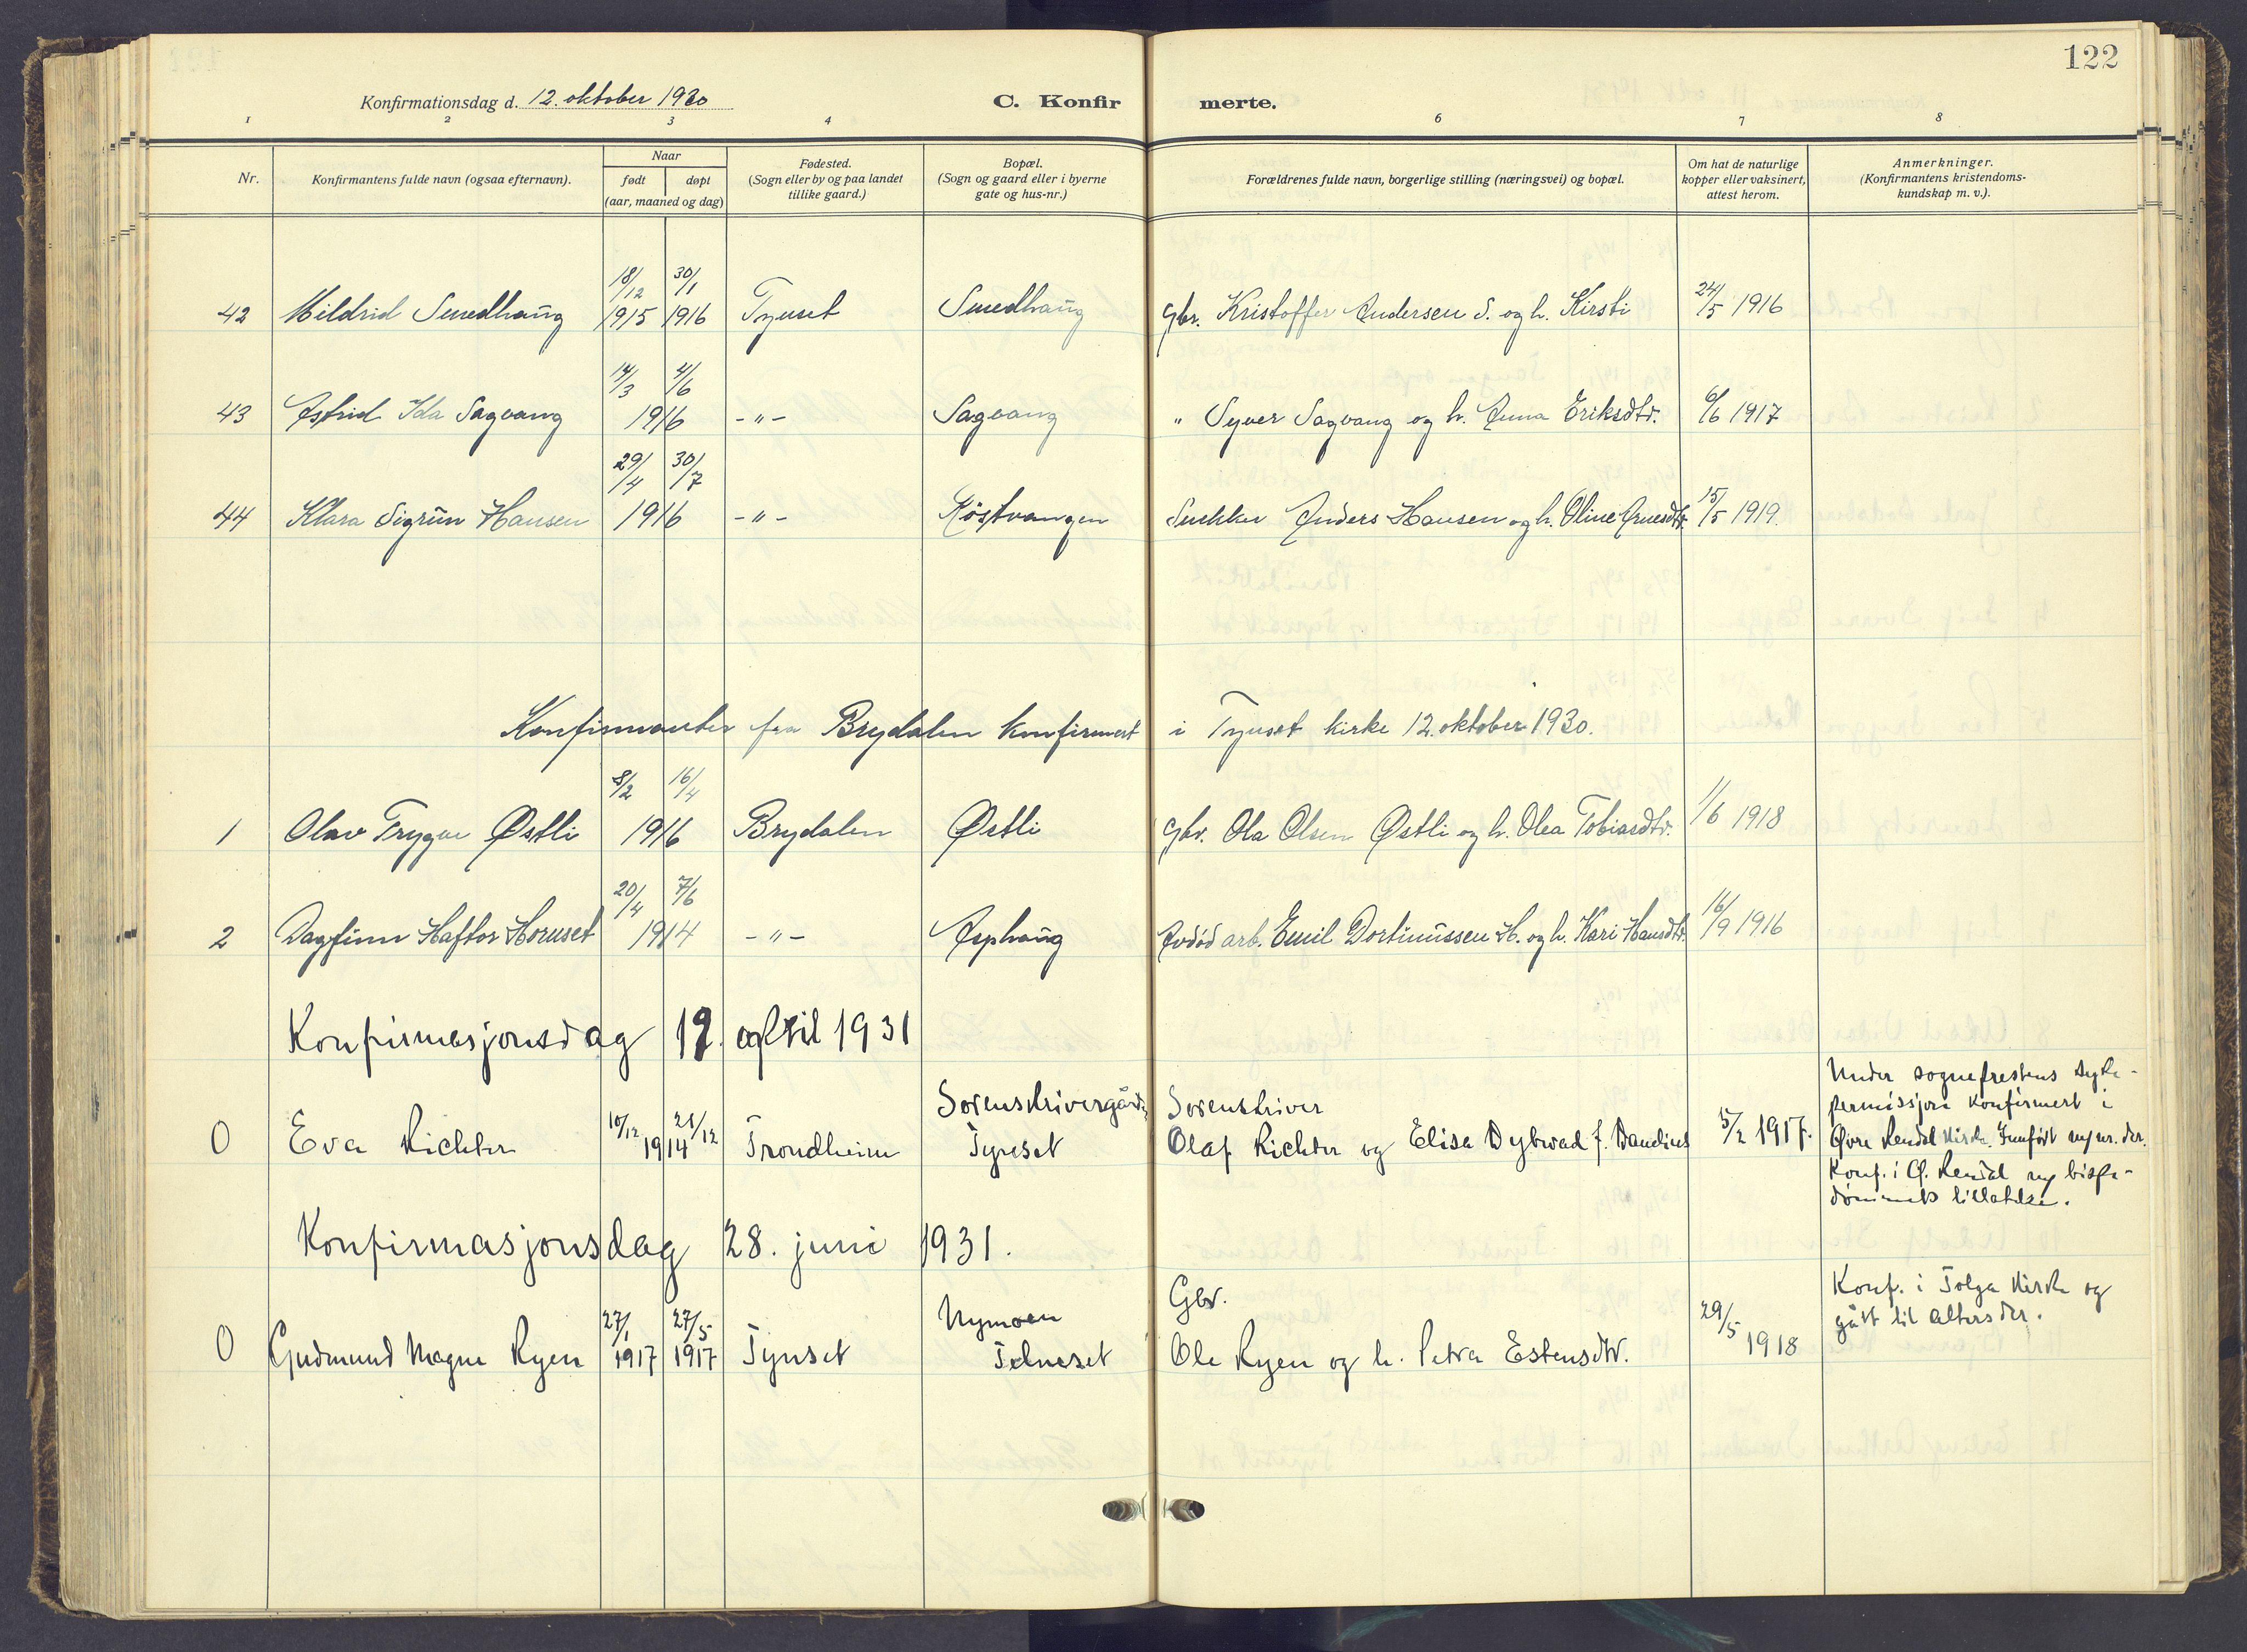 122
Konfirmationsdag d. 12. oktober 1930 C. Konfir merte.
1 2 3 4 6 7 8
Nr. Konfirmantens fulde navn (ogsaa efternavn). Naar født døpt (aar, maaned og dag) Fødested. (Sogn eller by og paa landet tillike gaard.) Bopæl. (Sogn og gaard eller i byerne gate og hus-nr.) Forældrenes fulde navn, borgerlige stilling (næringsvei) og bopæl. Om hat de naturlige kopper eller vaksinert, attest herom. Anmerkninger. (Konfirmantens kristendoms-kundskap m. v.).
42 Mildrid Smedhaug 18/12 1915 30/1 1916 Tynset Smedhaug Gbr. Kristoffer Andersen S. og h. Kirsti 24/5 1916
43 Astrid Ida Sagvang 14/3 4/6 1916 -"- Sagvang " Syver Sagvang og h. Anna Eriksdtr. 6/6 1917
44 Klara Sigrun Hansen 29/4 30/7 1916 -"- Røstvangen Snekker Anders Hansen og h. Oline Arnesdtr. 15/5 1919.
Konfirmanter fra Brydalen konfirmert i Tynset kirke 12. oktober 1930.
1 Olav Trygve Østli 8/2 16/4 1916 Brydalen Østli Gbr. Ola Olsen Østli og h. Olea Tobiasdtr. 1/6 1918
2 Dagfinn Haftor Horuset 20/4 7/6 1914 -"- Asphaug Avdød arb. Emil Dortinussen H. og h. Kari Hansdtr. 16/9 1916
Konfirmasjonsdag 12. april 1931
0 Eva Richter 10/12 21/12 1914 Trondheim Sorenskrivergården Tynset Sorenskriver Olaf Richter og Elisa Dybwad f. Bandius 5/2 1917.
Under sogneprestens syke-
permissjon konfirmert i
Øvre Rendal kirke. Innført nr. der.
Konf. i Ø. Rendal bispe-
dømmets tillatelse.
Konfirmasjonsdag 28. juni 1931.
0 Gudmund Magne Ryen 27/1 1917 27/5 1917 Tynset Nymoen Telneset Gbr. Ole Ryen og h. Petra Estensdtr. 29/5 1918
Konf. i Tolga kirke og
gått til alters der.